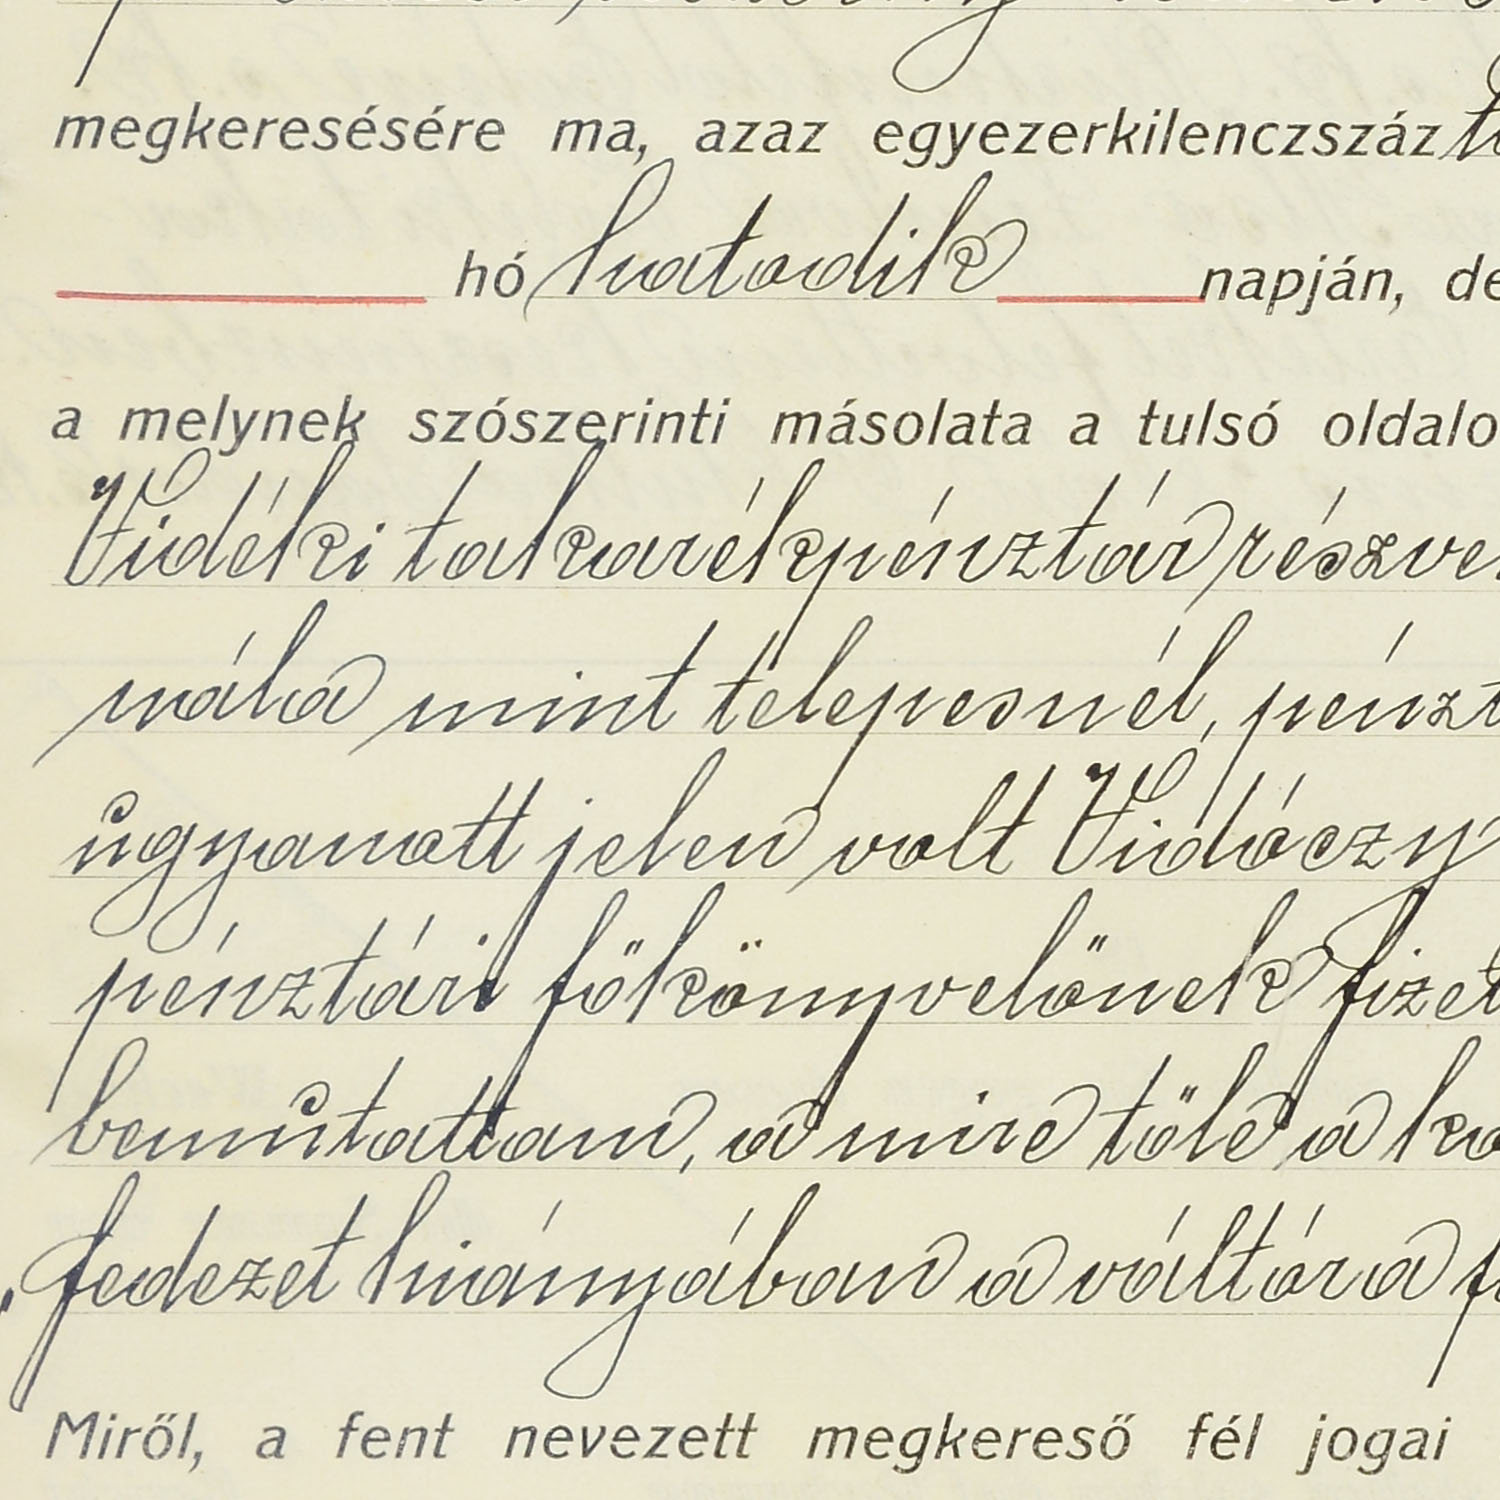 megkeresésére ma, azaz egyezerkilenczszáz
hó hatodik napján, de
a melynek szószerinti másolata a tulsó oldalo
Vidéki takarékpénztár részve
nála mint telepesnél, pénzt
ugyanott jelen volt Vidóczy
pénztári főkönyvelőnek fizet
bemutattam, a mire tőle a ka
„fedezet hiányában a váltóra f
Miről, a fent nevezett megkereső fél jogai